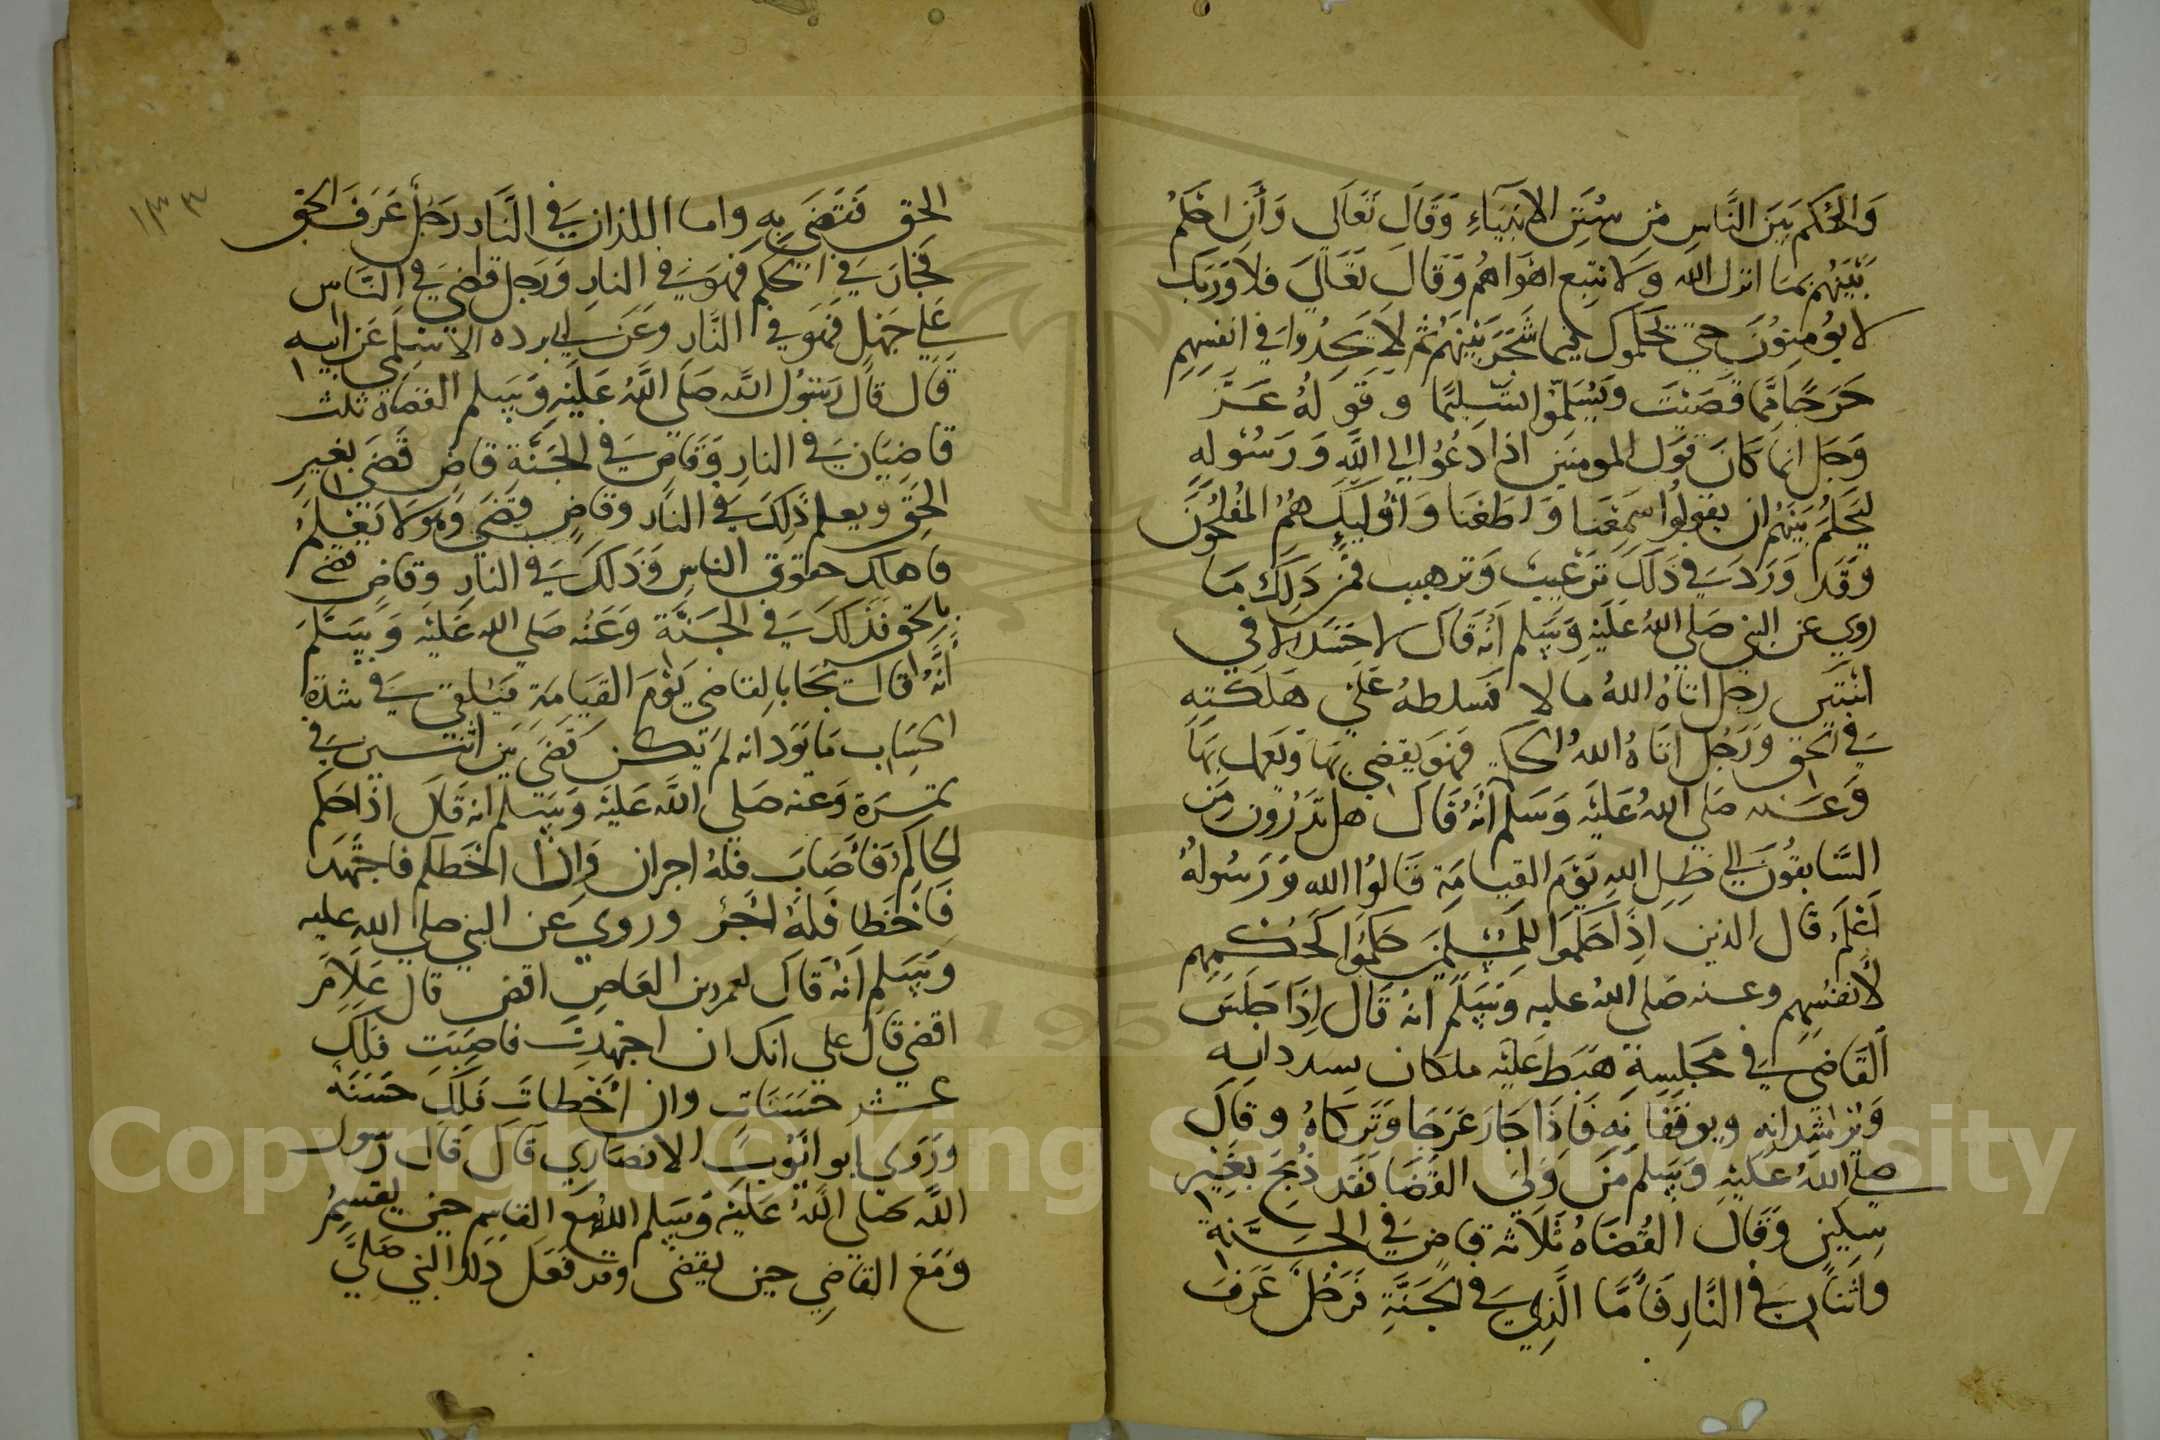 والحكم بين الناس من سنن الانبياء وقال تعالى وان احكم
بينهم بما انزل الله ولا تتبع اهواهم وقال تعالى فلا وربك
لا يومنون حتي يحكموك فيما شجر بينهم ثم لا يجدوا في انفسهم
حرجا مما قضيت ويسلموا تسليما وقوله عز
وجل انما كان قول المومنين اذا دعوا الي الله ورسوله
ليحكم بينهم ان يقولوا سمعنا واطعنا واوليك هم المفلحون
وقد ورد في ذلك ترغيب وترهيب فمن ذلك ما
روي عن النبي صلي الله عليه وسلم انه قال لا حسد الا في
اثنتين رجل اتاه الله مالا فسلطه علي هلكته
في الحق ورجل اتاه الله فهو يقضي بها ويعمل بها
وعنه صلي الله عليه وسلم انه قال هل تدرون من
السابقون الي ظل الله يوم القيامة قالوا الله ورسوله
اعلم قال الذين اذا حكموا للمسلمين حكموا كحكمهم
لانفسهم وعنه صلي الله عليه وسلم انه قال اذا جلس
القاضي في مجلسه هبط عليه ملكان يسددانه
ويرشدانه ويوفقانه فاذا جار عرجا وتركاه وقال
صلي الله عليه وسلم من ولي القضا فقد ذبح بغير
سكين وقال القضاه ثلاثه قاض في الجنة
واثنان في النار فاما الذي في الجنة فرجل عرف
١٣٣
الحق فقضى به واما اللذان في النار رجل عرف الحق
فجار في الحكم فهو في النار ورجل قاضي في الناس
علي جهل فهو في النار وعن ابي برده الاسلمي عن ابيه
قال قال رسول الله صلى الله عليه وسلم القضاه ثلث
قاضيان في النار وقاض في الجنة قاض قضى بغير
الحق ويعلم ذلك في النار وقاض قضى وهو لا يعلم
فاهلك حقوق الناس وذلك في النار وقاض قضى
بالحق فذلك في الجنة وعنه صلي الله عليه وسلم
انه قال يجا بالقاضي يوم القيامة فيلقى في شدة
الحساب ما يود انه لم يكن قضى بين اثنين في
تمرة وعنه صلي الله عليه وسلم انه قال اذا حكم
الحاكم فاصاب فله اجران فاجتهد
فاخطا فله اجر وروي عن النبي صلي الله عليه
وسلم انه قال لعمر بن العاص اقض قال علام
اقضي قال علي انك ان اجتهدت فاصبت فلك
عشر حسنات وان اخطات فلك حسنة
وروى ابو ايوب الانصاري قال قال رسول
الله صلى الله عليه وسلم الله مع القاسم حين يقسم
ومع القاضي حين يقضى وقد فعل ذلك النبي صلي
Copyright © King Saud University
195